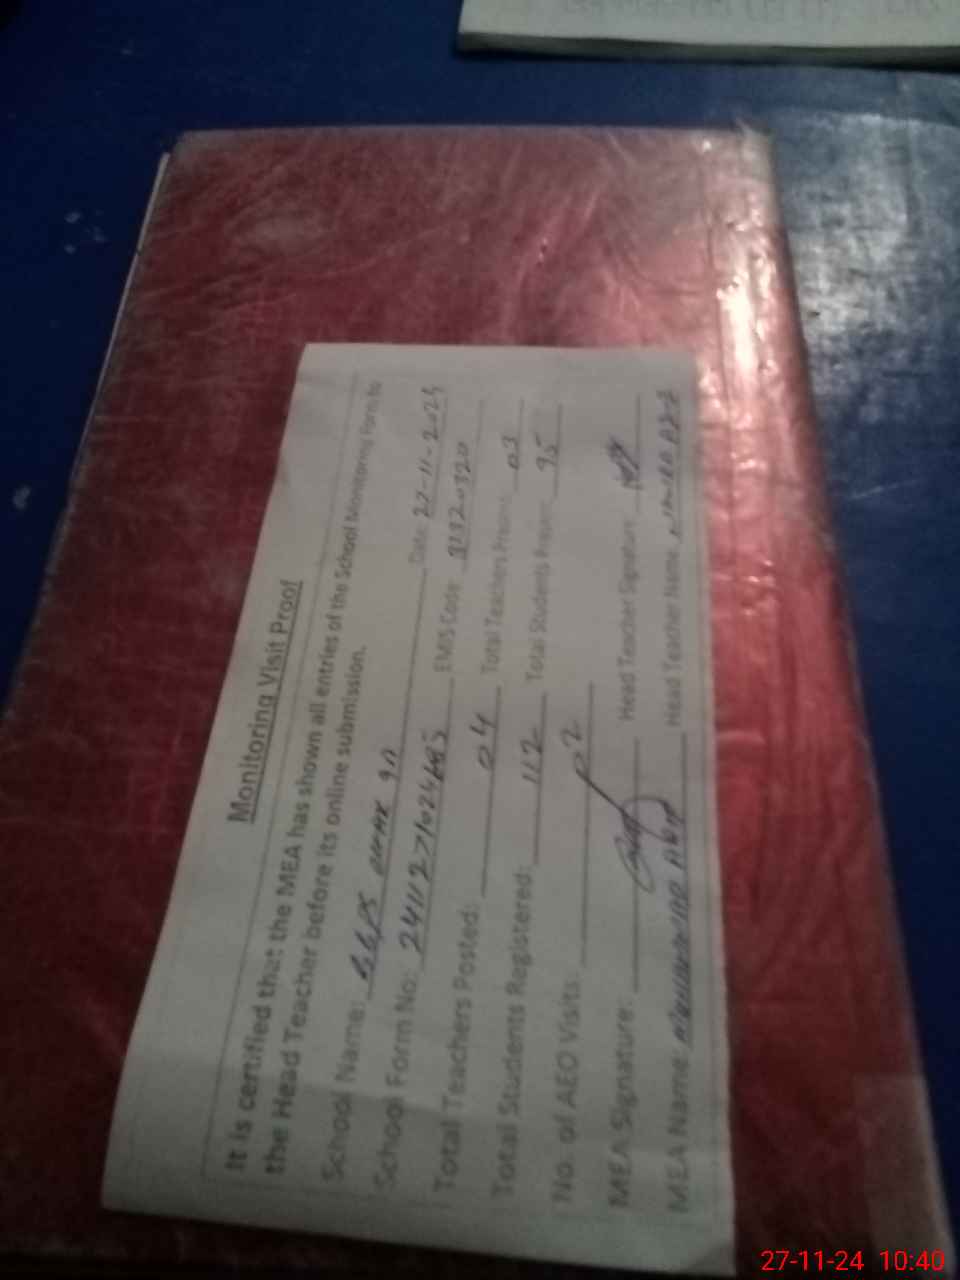 Monitoring Visit Proof
It is certified that the MEA has shown all entries of the School Monitoring Form to
the Head Teacher before its online submission.
School Name: Date: 27-11-2024
School Form No: EMIS Code: 31320320
Total Teachers Posted: 04 Total Teachers Present: 03
Total Students Registered: 112 Total Students Present: 95
No. of AEO Visits: 02
MEA Signature: Head Teacher Signature:
MEA Name: Head Teacher Name:
27-11-24 10:40